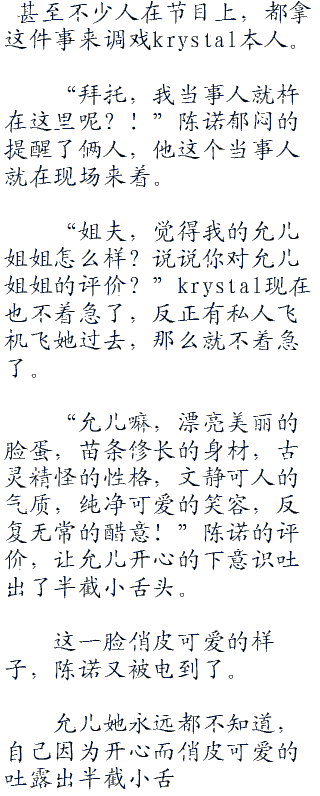 甚至不少人在节目上，都拿
这件事来调戏krystal本人。
“拜托，我当事人就杵
在这里呢？！”陈诺郁闷的
提醒了俩人，他这个当事人
就在现场来着。
“姐夫，觉得我的允儿
姐姐怎么样？说说你对允儿
姐姐的评价？”krystal现在
也不着急了，反正有私人飞
机飞她过去，那么就不着急
了。
“允儿嘛，漂亮美丽的
脸蛋，苗条修长的身材，古
灵精怪的性格，文静可人的
气质，纯净可爱的笑容，反
复无常的醋意！”陈诺的评
价，让允儿开心的下意识吐
出了半截小舌头。
这一脸俏皮可爱的样
子，陈诺又被电到了。
允儿她永远都不知道，
自己因为开心而俏皮可爱的
吐露出半截小舌